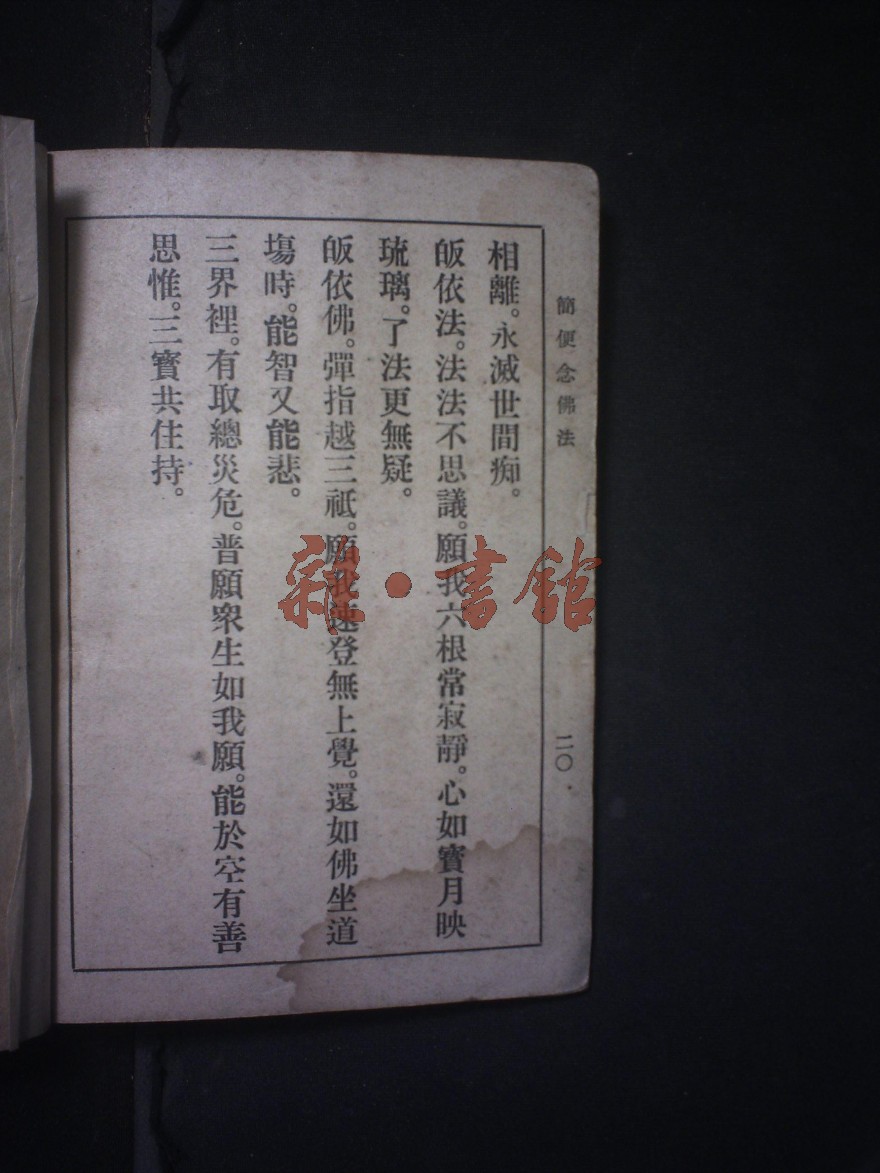 簡便念佛法
二〇
相離。永滅世間痴。
皈依法。法法不思議。願我六根常寂靜。心如寶月映
琉璃。了法更無疑。
皈依佛。彈指越三祗。願我速登無上覺。還如佛坐道
塲時。能智又能悲。
三界裡。有取總災危。普願衆生如我願。能於空有善
思惟。三寶共住持。
雜·書館